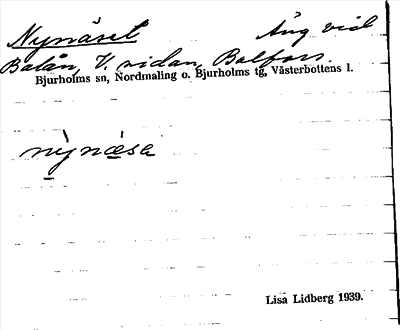 Nynäset Äng vid
Balån, V. sidan, Balfors.
Bjurholms sn, Nordmaling o. Bjurholms tg, Västerbottens l.
nỳnæsa
Lisa Lidberg 1939.